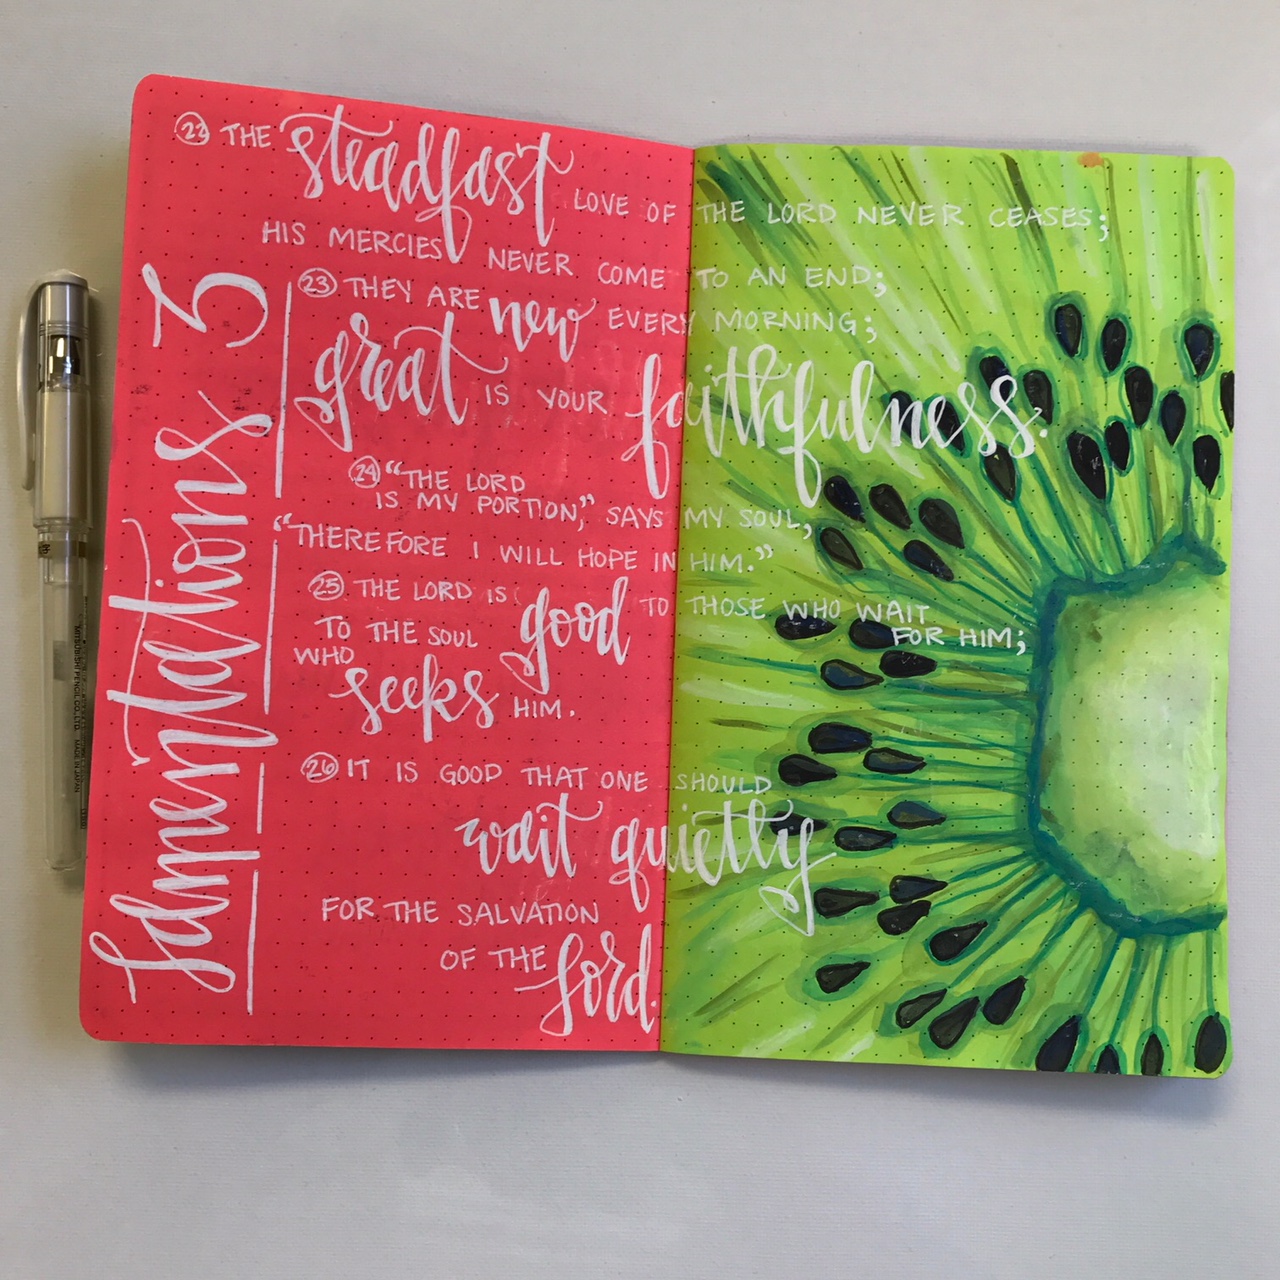 Lamentations 3
22 THE steadfast LOVE OF THE LORD NEVER CEASES;
HIS MERCIES NEVER COME TO AN END;
23 THEY ARE new EVERY MORNING;
great IS YOUR faithfulness.
24 "THE LORD
IS MY PORTION," SAYS MY SOUL,
"THEREFORE I WILL HOPE IN HIM."
25 THE LORD IS good TO THOSE WHO WAIT
FOR HIM;
TO THE SOUL
WHO
seeks HIM.
26 IT IS GOOD THAT ONE SHOULD
wait quietly
FOR THE SALVATION
OF THE Lord.
MITSUBISHI PENCIL CO., LTD. MADE IN JAPAN